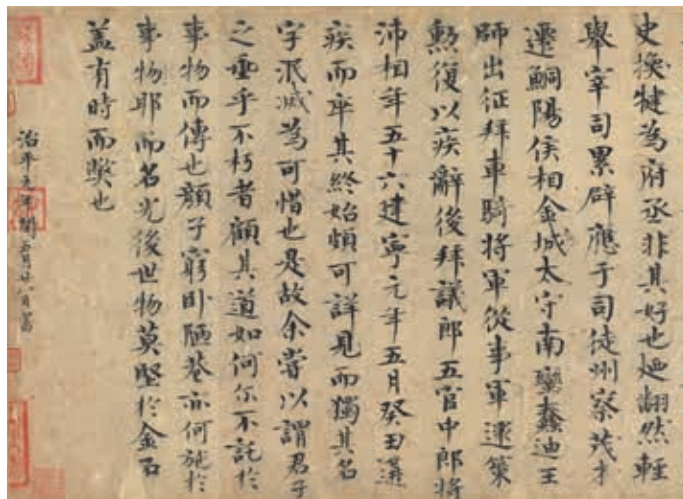 史換犍為府丞非其好也迺翻然輕
舉宰司累辟應于司徒州察茂才
遷鮦陽侯相金城太守南蠻蠢迪王
師出征拜車騎將軍從事軍還策
勲復以疾辭後拜議郎五官中郎將
沛相年五十六建寧元年五月癸丑遘
疾而卒其終始頗可詳見而獨其名
字泯滅為可惜也是故余嘗以謂君子
之垂乎不朽者顧其道如何尓不託於
事物而傳也顏子窮卧陋巷亦何施於
事物耶而名光後世物莫堅於金石
蓋有時而獘也
治平元年閏五月廿八日書